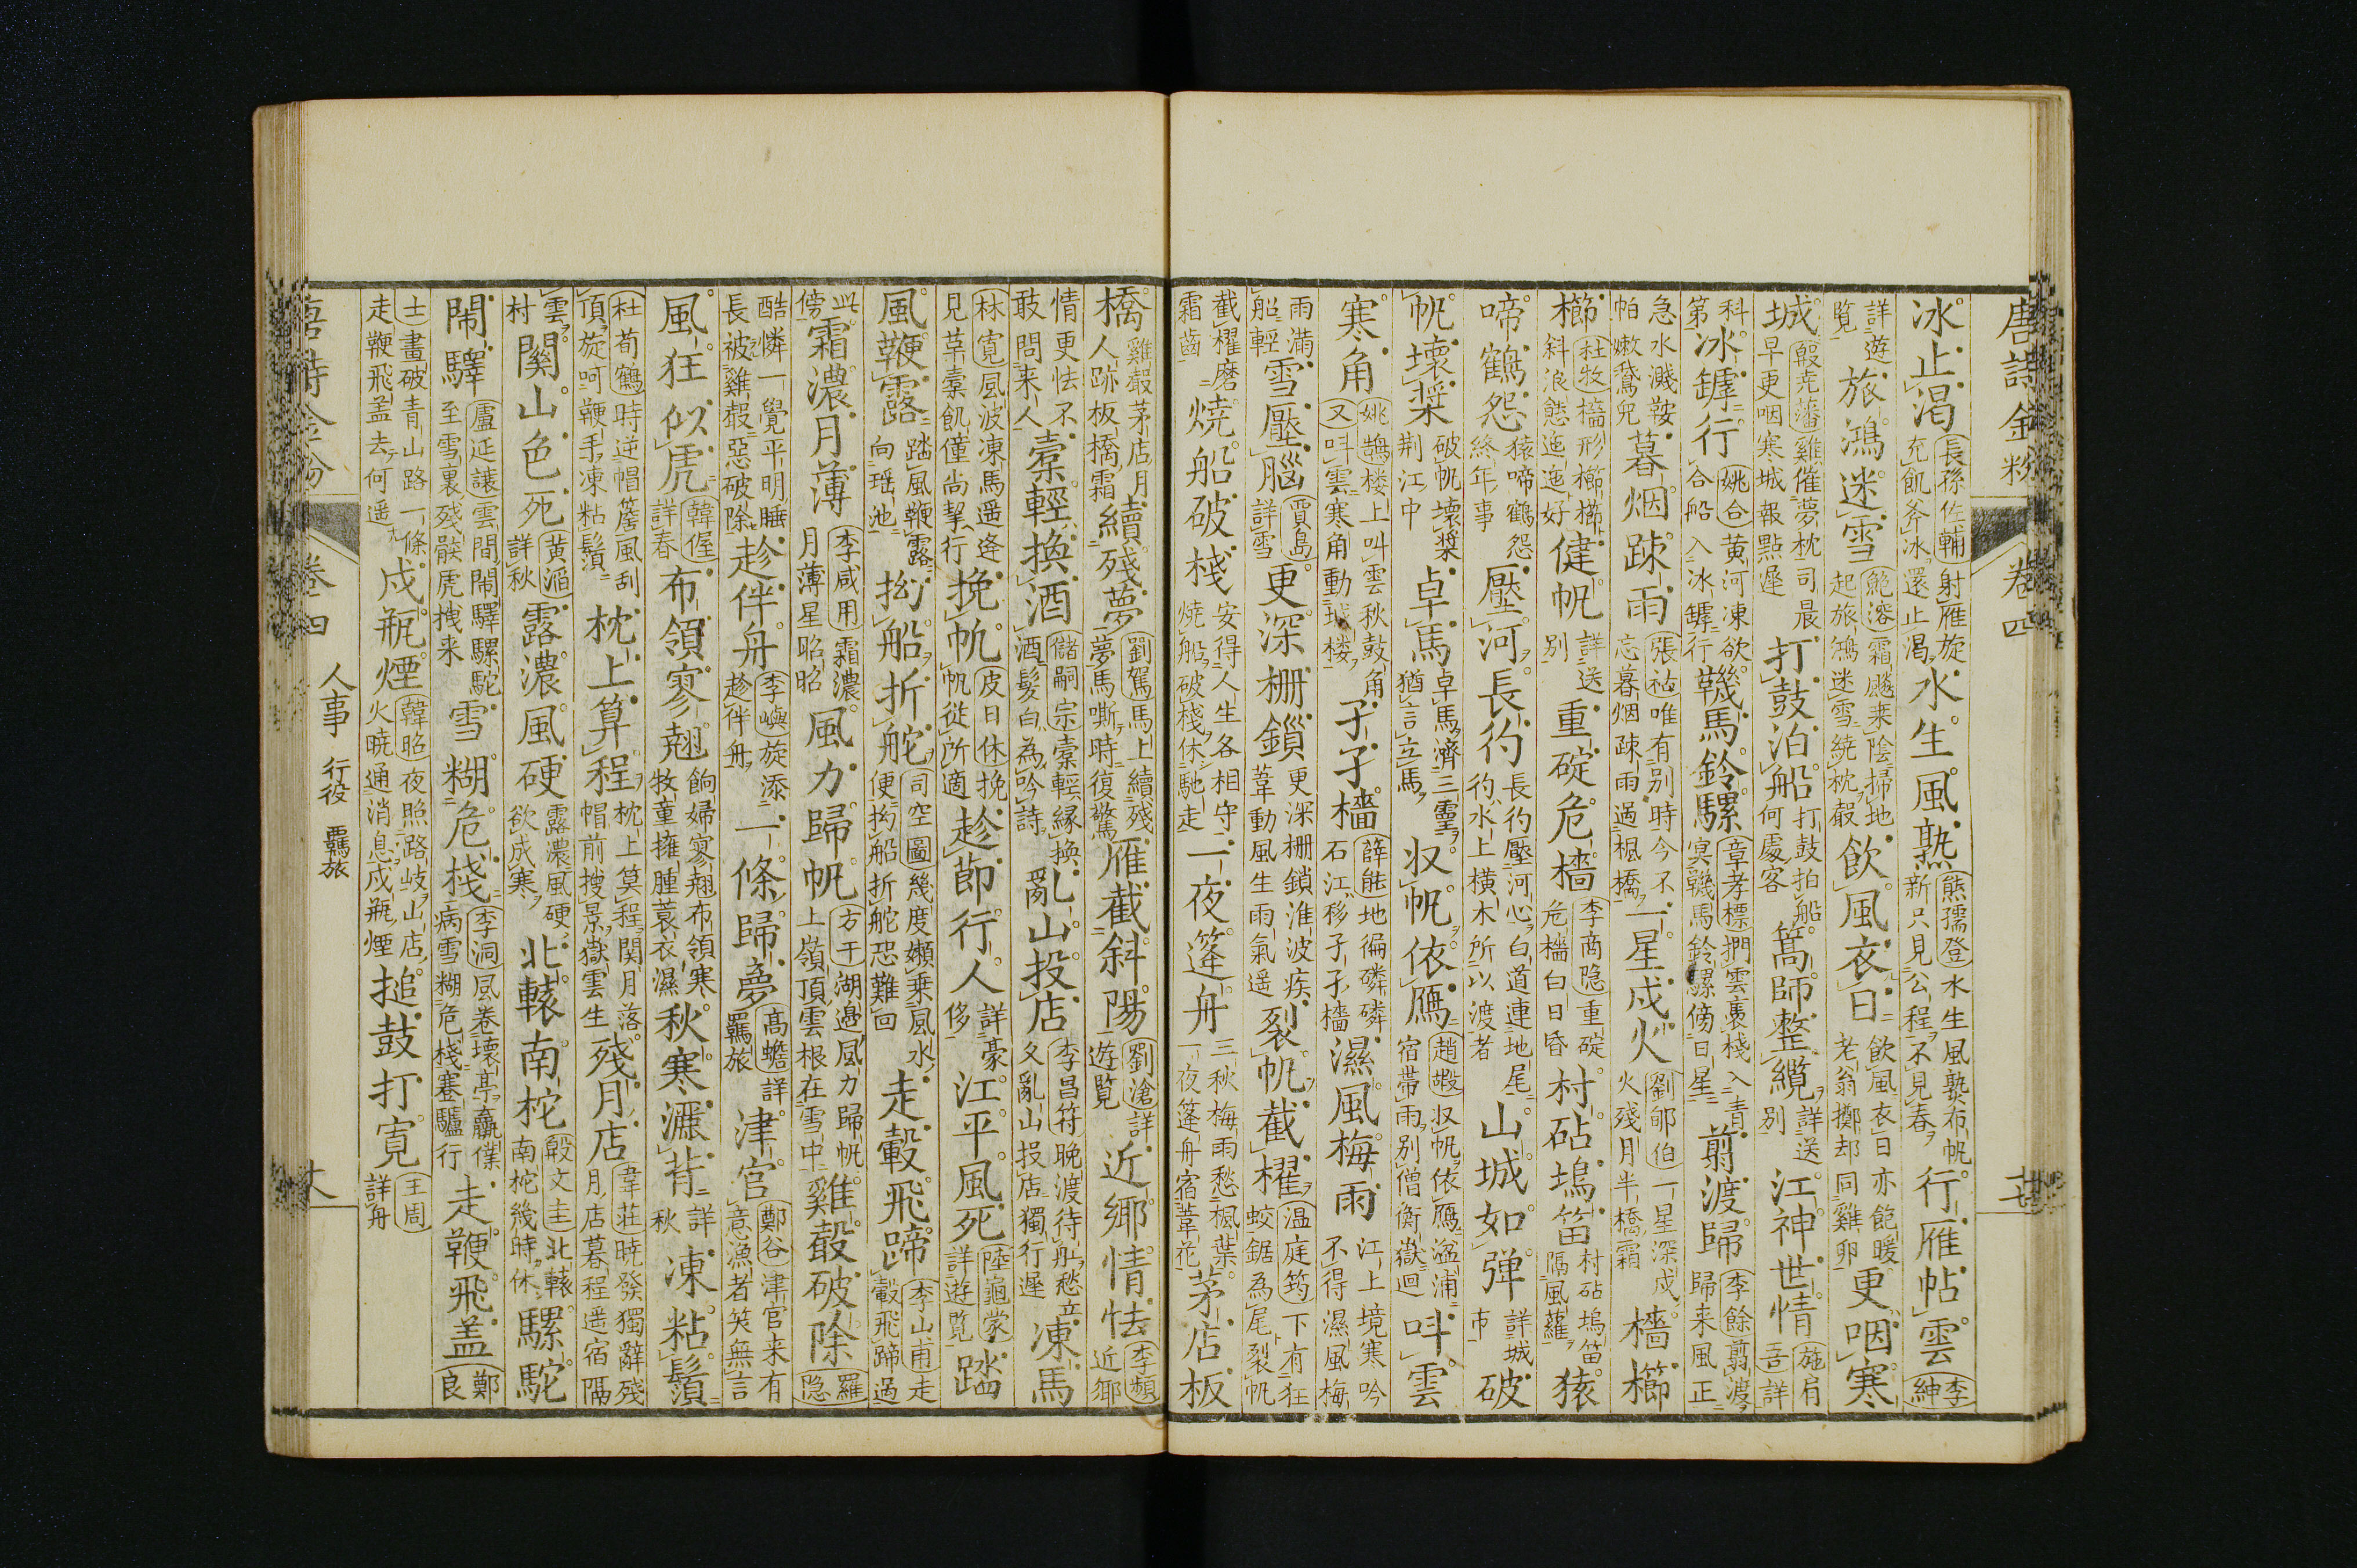 唐詩金粉　卷四　十七
冰止渴 長孫佐輔 射雁旋充飢斧冰還止渇 水生風熟 熊孺登 水生風熟布帆新只見公程不見春 行雁帖雲 李紳
詳遊覧 旅鴻迷雪 鮑溶 霜飈来陰掃地起旅鴻迷雪繞枕聲 飲風衣日 飲風衣日亦飽暖老翁擲却同雞卵 更咽寒
城 殷尭藩 雞催夢枕司晨早更咽寒城報點遲 打鼓泊船 打鼓拍船何處客 篙師整纜 詳送别 江神世情 施肩吾詳
科第 冰罅行 姚合 黄河凍欲合船入冰罅行 鞿馬鈴騾 章孝標 捫雲裏棧入青冥鞿馬鈴騾傍日星 剪渡歸 李餘 剪渡歸来風正
急水濺鞍帕嫩鵞兒 暮烟踈雨 張祜 唯有别時今不忘暮烟踈雨過楓橋 一星戍火 劉郇伯 一星深戍火殘月半橋霜 檣櫛
櫛 杜牧 檣形櫛櫛斜浪態迤迤好 健帆 詳送别 重碇危檣 李商隐 重碇危檣白日昏 村砧塢笛 村砧塢笛隔風蘿 猿
啼鶴怨 猿啼鶴怨終年事 壓河長彴 長彴壓河心白道連地尾彴水上横木所以渡者 山城如弾 詳城市 破
帆壊桨 破帆壊桨荆江中 卓馬 卓馬濟三靈猶言立馬 収帆依鴈 趙嘏 収帆依鴈湓浦宿帯雨别僧衡嶽迴 叫雲
寒角 姚鵠 楼上叫雲秋鼓角 又 叫雲寒角動城楼 孑孑檣 薛能 地徧磷磷石江移孑孑檣 濕風梅雨 江上境寒吟不得濕風梅
雨满船輕 雪壓腦 賈島 詳雪 更深柵鎖 更深柵鎖淮波疾葦動風生雨氣遥 裂帆截櫂 温庭筠 下有狂蛟鋸為尾裂帆
截櫂磨霜齒 焼船破棧 安得人生各相守焼船破棧休馳走 一夜篷舟 三秋梅雨愁楓葉一夜篷舟宿葦花 茅店板
橋 雞聲茅店月人跡板橋霜 續殘夢 劉駕 馬上續殘夢馬嘶時復驚 雁截斜陽 劉滄 詳遊覧 近郷情怯 李頻 近郷
情更怯不敢問来人 橐輕換酒 儲嗣宗 橐輕縁換酒髪白為吟詩 亂山投店 李昌符 晩渡待舡愁立久亂山投店獨行遲 凍馬
林寛 風波凍馬遥逄見草橐飢僮尚挈行 挽帆 皮日休 挽帆従所適 趁節行人 詳豪侈 江平風死 陸龜蒙 詳遊覧 踏
風鞭露 踏風鞭露向瑶池 拗船折舵 司空圖 幾度嬾乗風水便拗船折舵恐難回 走轂飛蹄 李山甫 走轂飛蹄過
此傍 霜濃月薄 李咸用 霜濃月薄星昭昭 風力歸帆 方干 湖邉風力歸帆上嶺頂雲根在雪中 雞聲破除 羅隐
酷憐一覺平明睡長被雞聲惡破除 趁伴舟 李嶼 旋添趁伴舟 一條歸夢 高蟾 詳羈旅 津官 鄭谷 津官来有意漁者笑無言
風狂似虎 韓偓 詳春 布領寥翘 餉婦寥翘布領寒牧童擁腫蓑衣濕 秋寒灑背 詳秋 凍粘鬚
杜荀鶴 時逆帽簷風刮頂旋呵鞭手凍粘鬚 枕上算程 枕上筭程関月落帽前搜景嶽雲生 殘月店 韋莊 暁發獨辭殘月店暮程遥宿隔
雲村 関山色死 黄滔 詳秋 露濃風硬 露濃風硬欲成寒 北轅南柁 殷文圭 北轅南柁幾時休 騾駝
閙驛 盧延讓 雲間閙驛騾駝至雪裏殘骸虎拽来 雪糊危棧 李洞 風卷壊亭羸僕病雪糊危棧蹇驢行 走鞭飛盖 鄭良
士 畫破青山路一條走鞭飛盖去何遥 戍瓶煙 韓昭 夜照路岐山店火暁通消息戍瓶煙 搥鼓打寛 王周 詳舟
唐詩金粉　卷四　人事　行役　羈旅